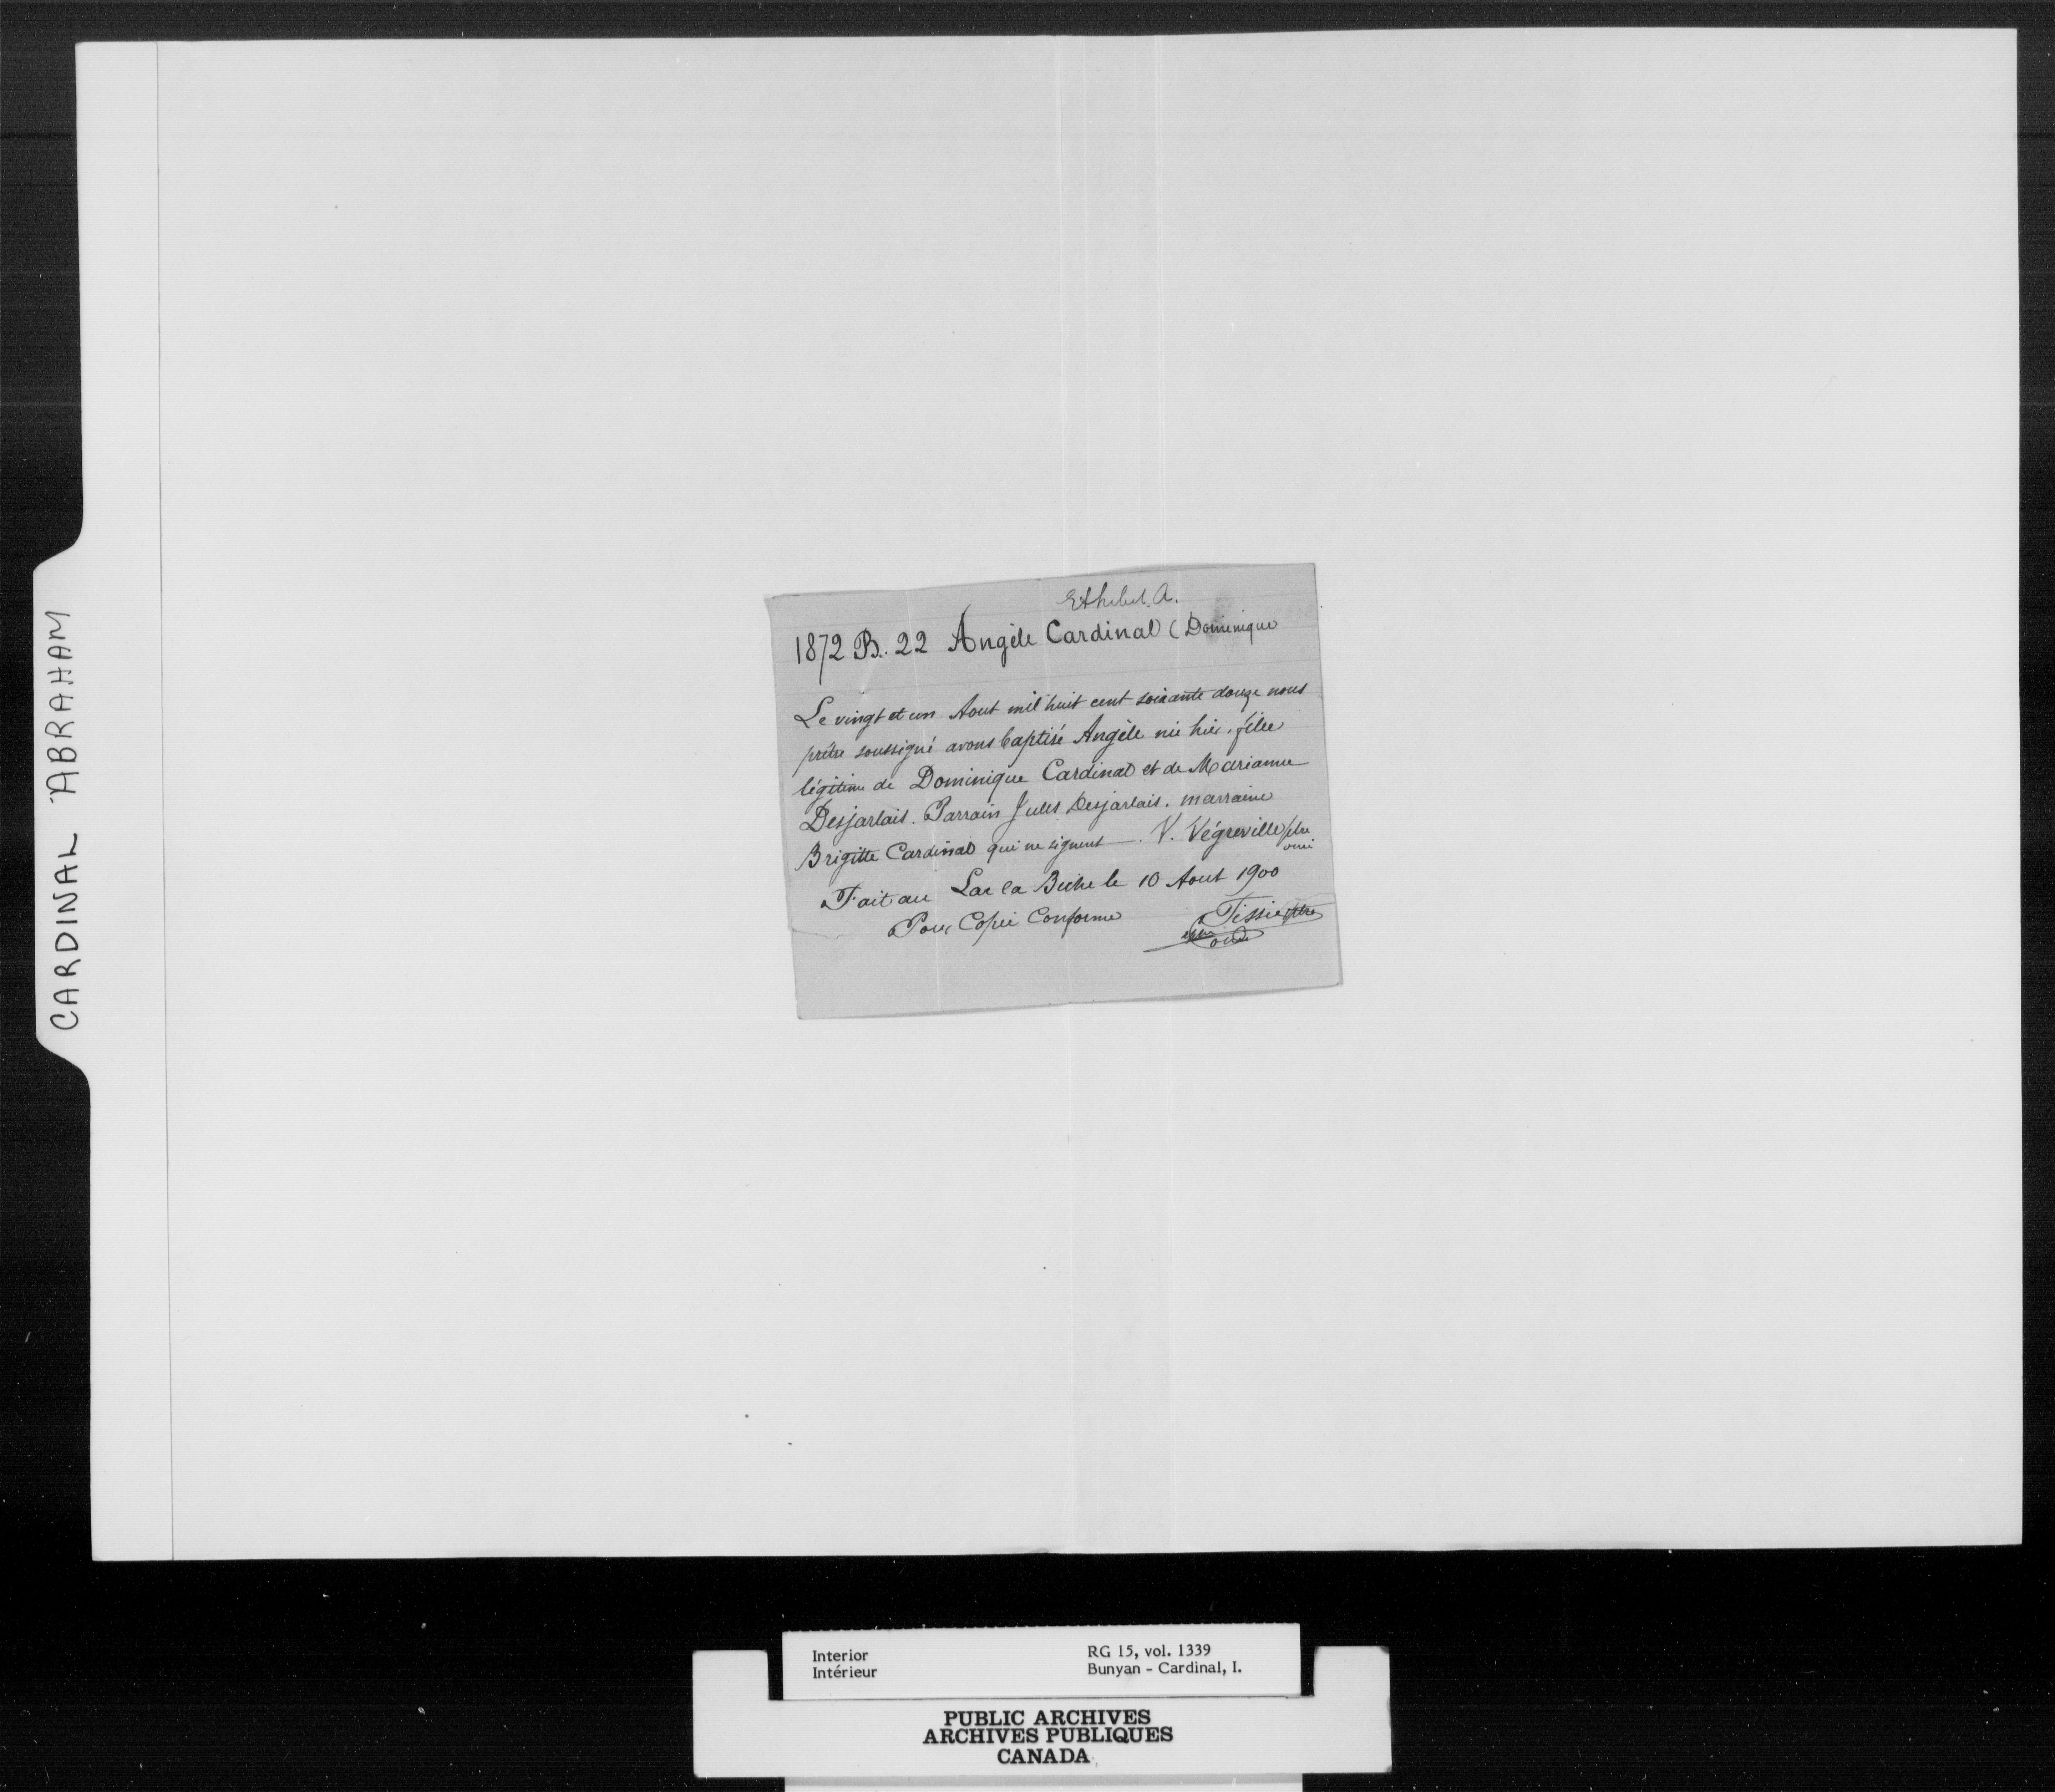 CARDINAL ABRAHAM
Exhibit A.
1872 B. 22 Angèle Cardinal (Dominique
Le vingt et un Aout mil huit cent soixante douze nous
prêtre soussigné avons baptisé Angèle née hier, fille
légitime de Dominique Cardinal et de Marianne
Desjarlais. Parrain Jules Desjarlais. marraine
Brigitte Cardinal qui ne signent. V. Végreville ptre
omi
Fait au Lac la Biche le 10 Aout 1900
Pour Copie Conforme Tissier ptre
Interior RG 15, vol. 1339
Intérieur Bunyan - Cardinal, I.
PUBLIC ARCHIVES
ARCHIVES PUBLIQUES
CANADA